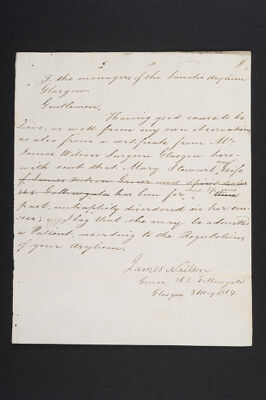 To the managers of the Lunatic Asylum
Glasgow
Gentlemen,
Having good cause to be
lieve, as well from my own observation
as also from a certificate from Mr
James Wilson Surgeon Glasgow here
with sent that Mary Stewart, my Wife
of James and
365 Gallowgate has been for time
past, unhappily disordered in her sen
ses; I beg that she may be admitted
a Patient, according to the Regulations
of your Asylum.
James Neilson
365 Gallowgate
Glasgow 3 May